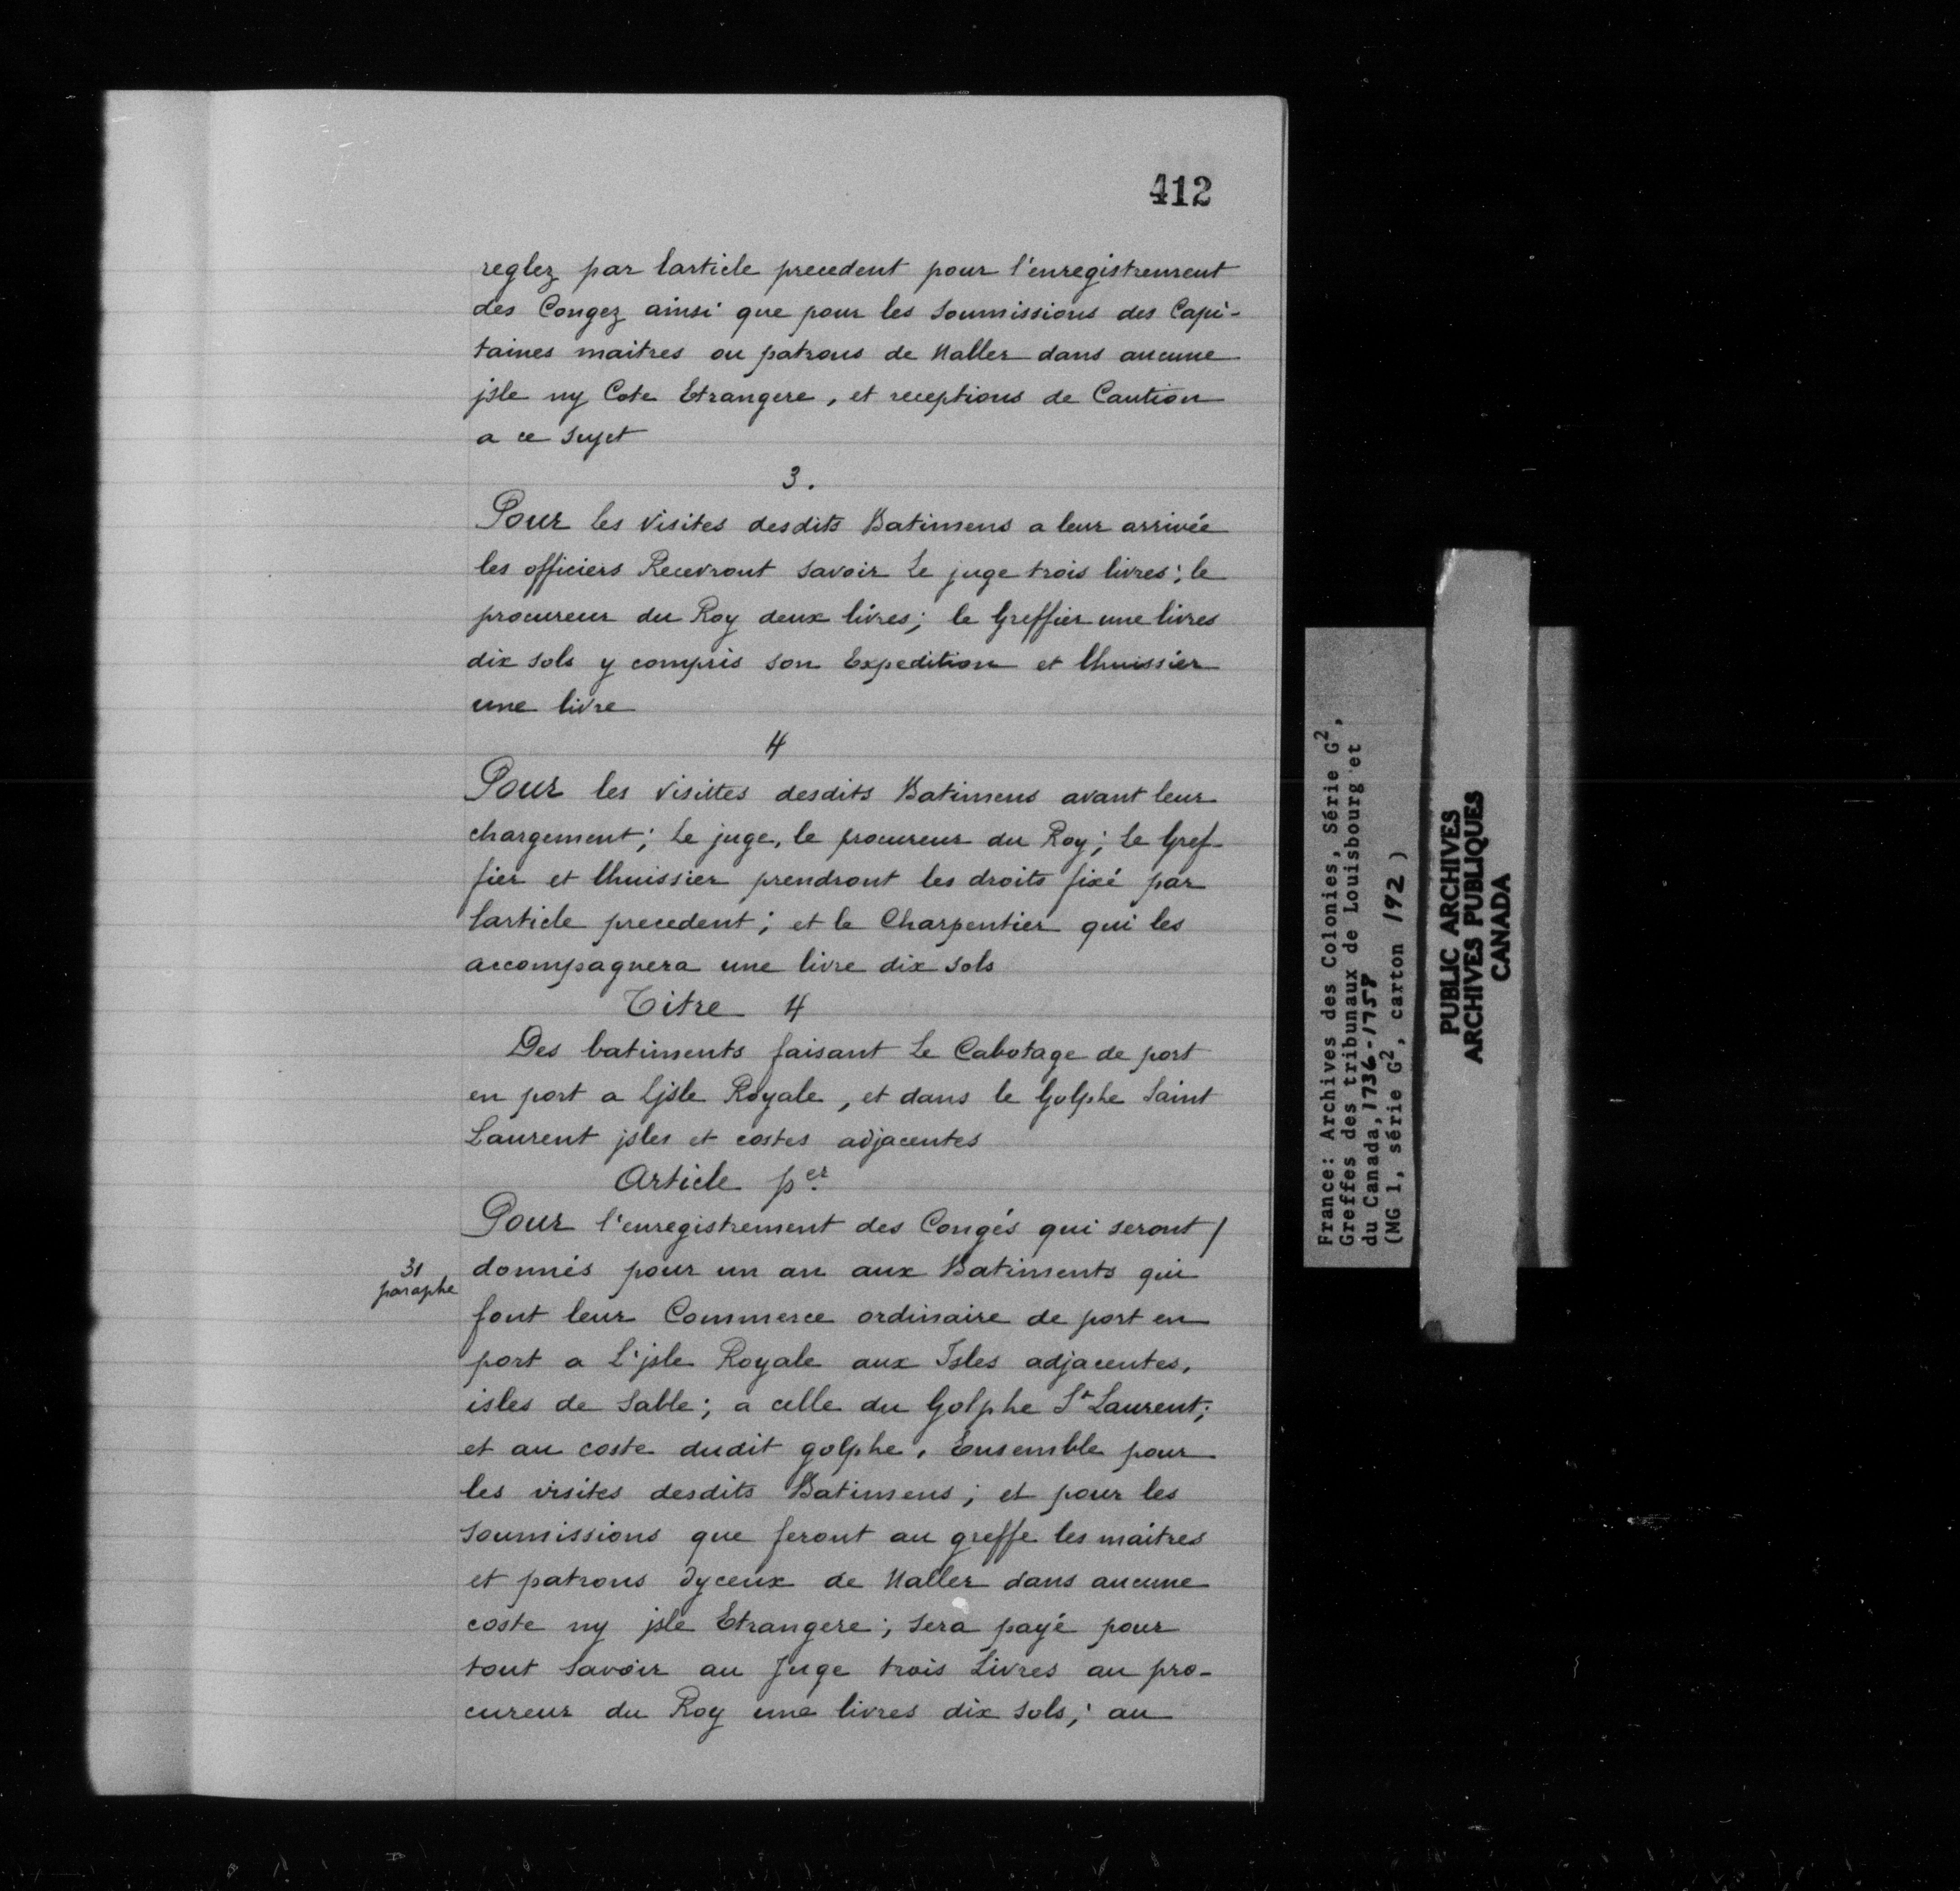 412
reglez par larticle precedent pour l'enregistrement
des Congez ainsi que pour les soumissions des Capi-
taines maitres ou patrons de Naller dans aucune
jsle ny Cote Etrangere, et receptions de Caution
a ce sujet
3.
Pour les visites desdits Batimens a leur arrivée
les officiers Recevront savoir Le juge trois livres; le
procureur du Roy deux livres; le Greffier une livres
dix sols y compris son Expedition et lhuissier
une livre
4
Pour les visittes desdits Batimens avant leur
chargement; Le juge, le procureur du Roy; Le Gref-
fier et lhuissier prendront les droits fixé par
larticle precedent; et le Charpentier qui les
accompagnera une livre dix sols
Titre 4
Des batiments faisant Le Cabotage de port
en port a Ljsle Royale, et dans le Golphe Saint
Laurent jsles et costes adjacentes
Article per
Pour l'enregistrement des Congés qui seront /
31
paraphe
donnés pour un an aux Batiments qui
font leur Commerce ordinaire de port en
port a L'jsle Royale aux Isles adjacentes,
isles de Sable; a celle du Golphe St Laurent;
et au coste dudit golphe, Ensemble pour
les visites desdits Batimens; et pour les
soumissions que feront au greffe les maitres
et patrons dyceux de Naller dans aucune
coste ny jsle Etrangere; sera payé pour
tout savoir au Juge trois Livres au pro-
cureur du Roy une livres dix sols; au
France: Archives des Colonies, Série G2,
Greffes des tribunaux de Louisbourg et
du Canada, 1736-1758
(MG 1, série G2, carton 192)
PUBLIC ARCHIVES
ARCHIVES PUBLIQUES
CANADA